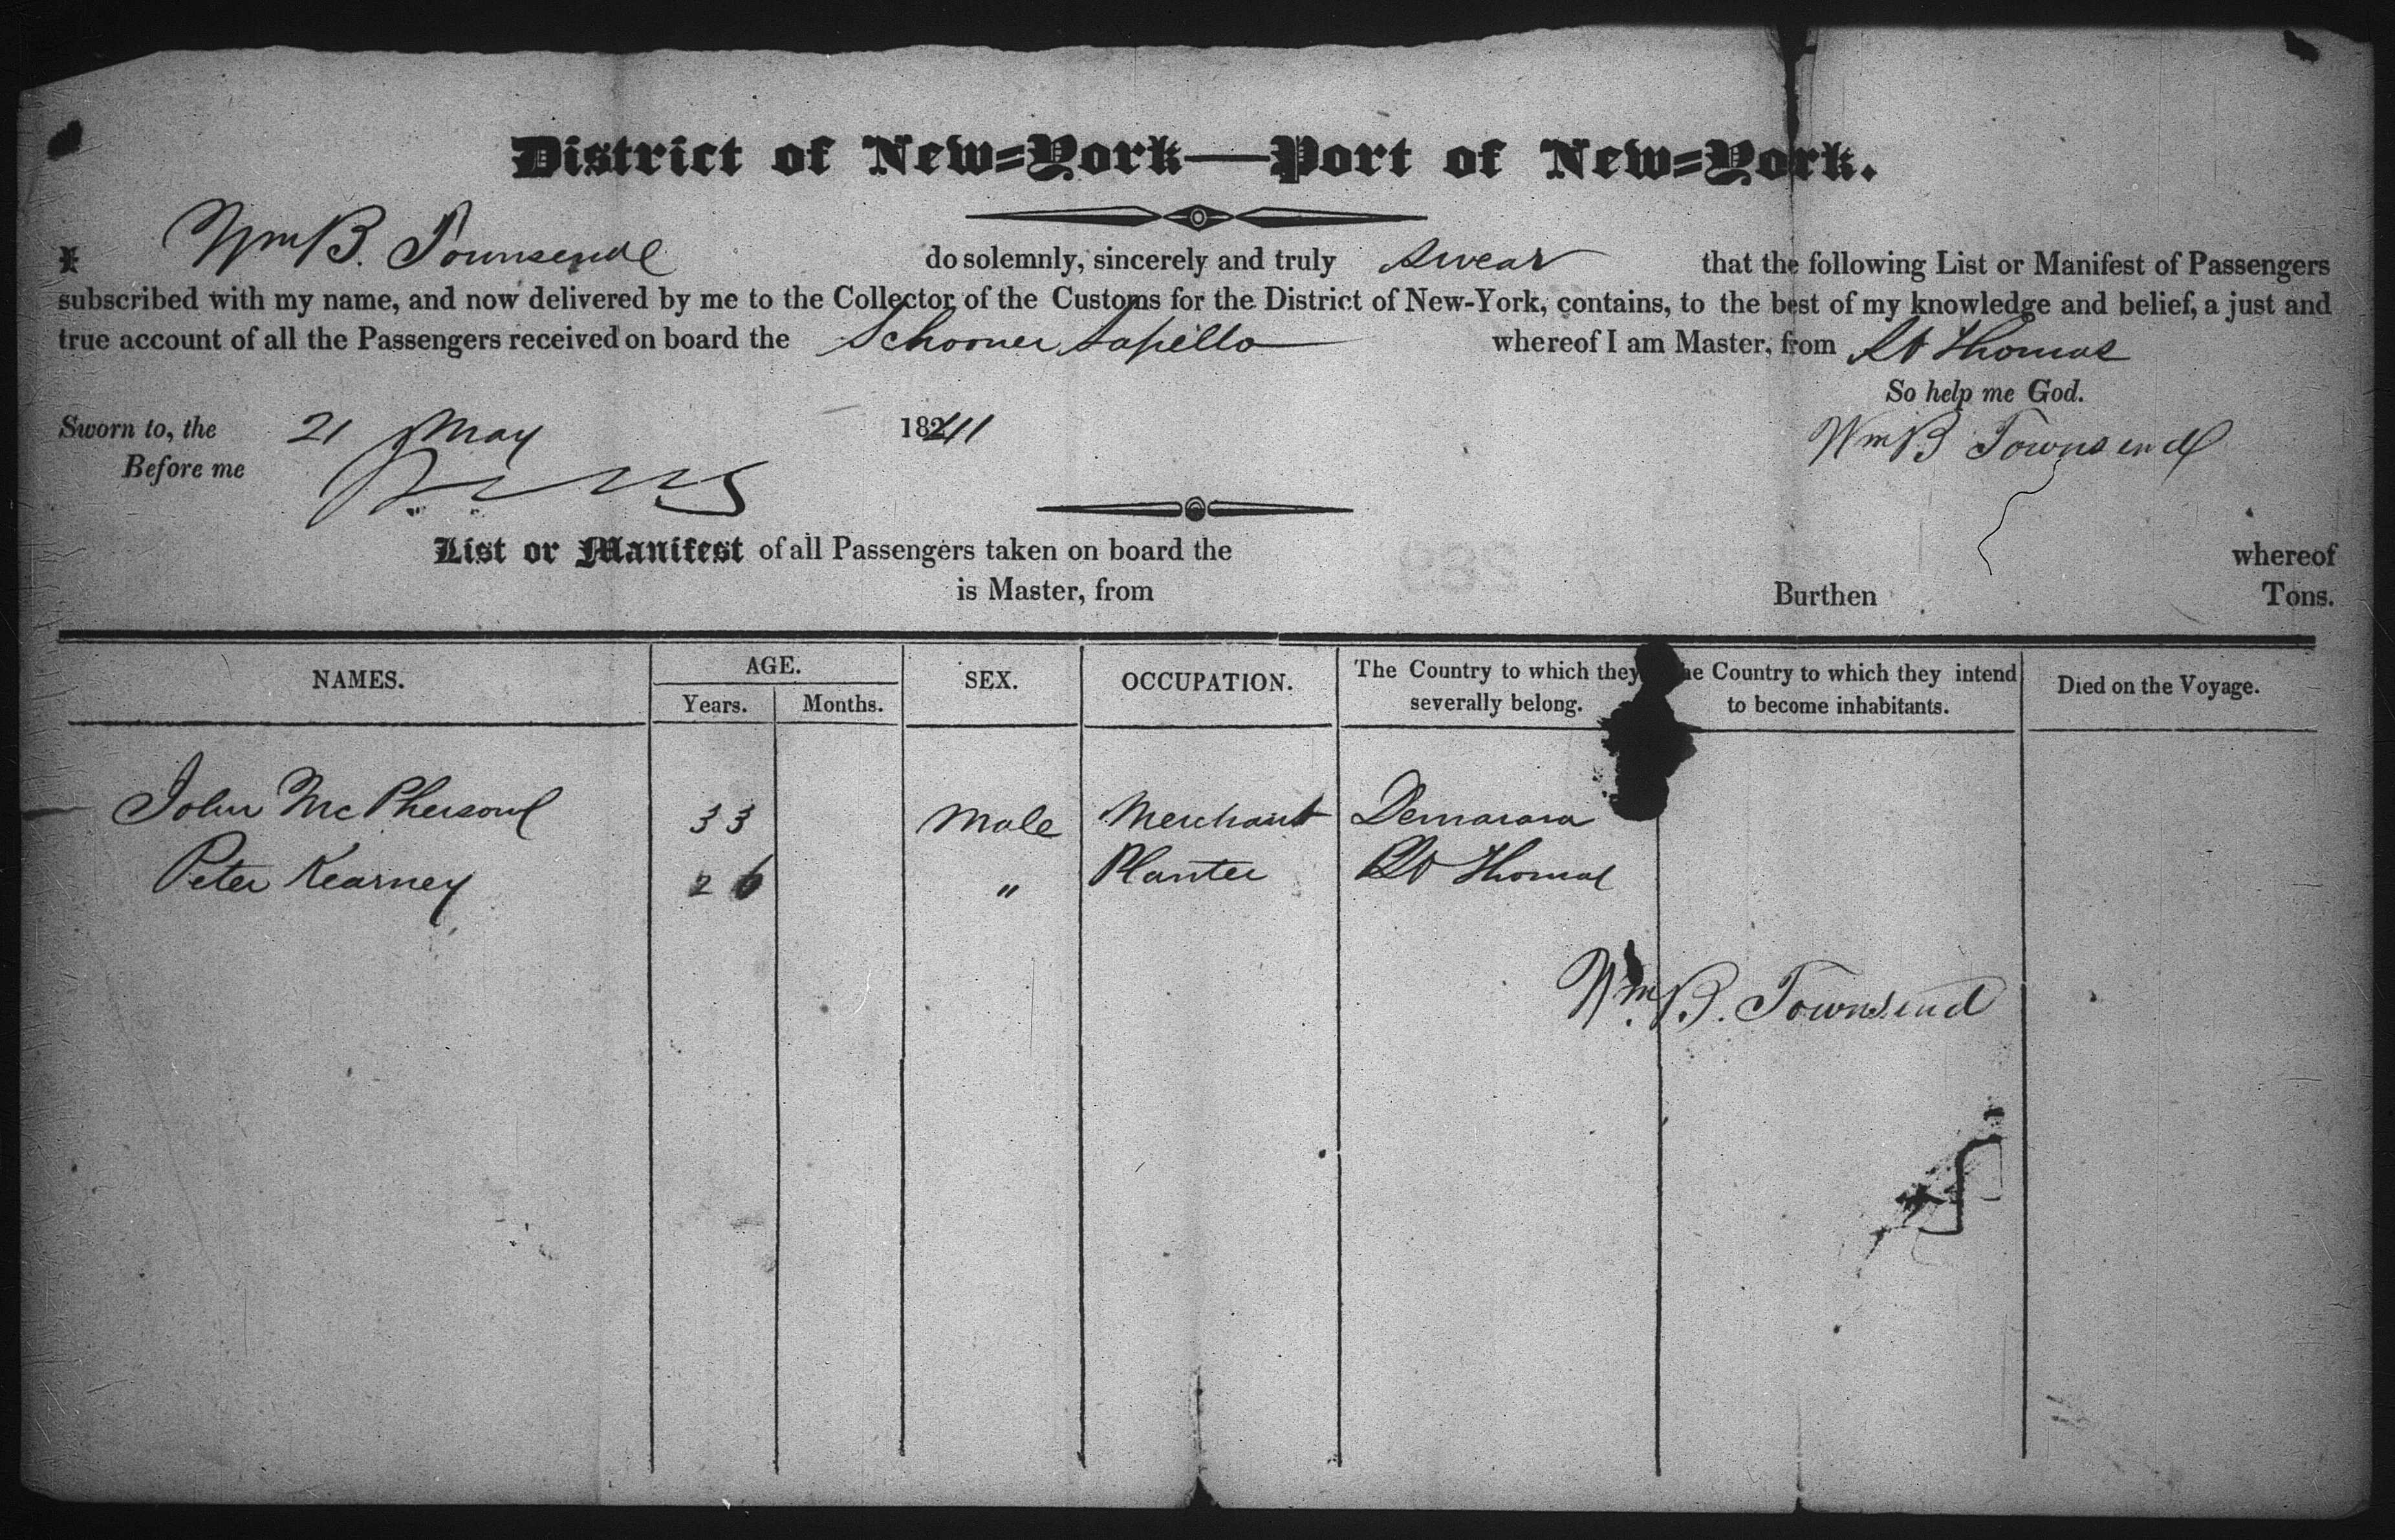 District of New=York—Port of New=York.
I Wm B. Townsend do solemnly, sincerely and truly swear that the following List or Manifest of Passengers
subscribed with my name, and now delivered by me to the Collector of the Customs for the District of New-York, contains, to the best of my knowledge and belief, a just and
true account of all the Passengers received on board the Schooner Sapello whereof I am Master, from St Thomas
So help me God.
Sworn to, the 21 May 1841 Wm B Townsend
Before me
List or Manifest of all Passengers taken on board the whereof
is Master, from Burthen Tons.
NAMES. AGE. SEX. OCCUPATION. The Country to which they severally belong. The Country to which they intend to become inhabitants. Died on the Voyage.
Years. Months.
John McPherson 33 Male Merchant Demarara
Peter Kearney 26 " Planter St Thomas
Wm B. Townsend